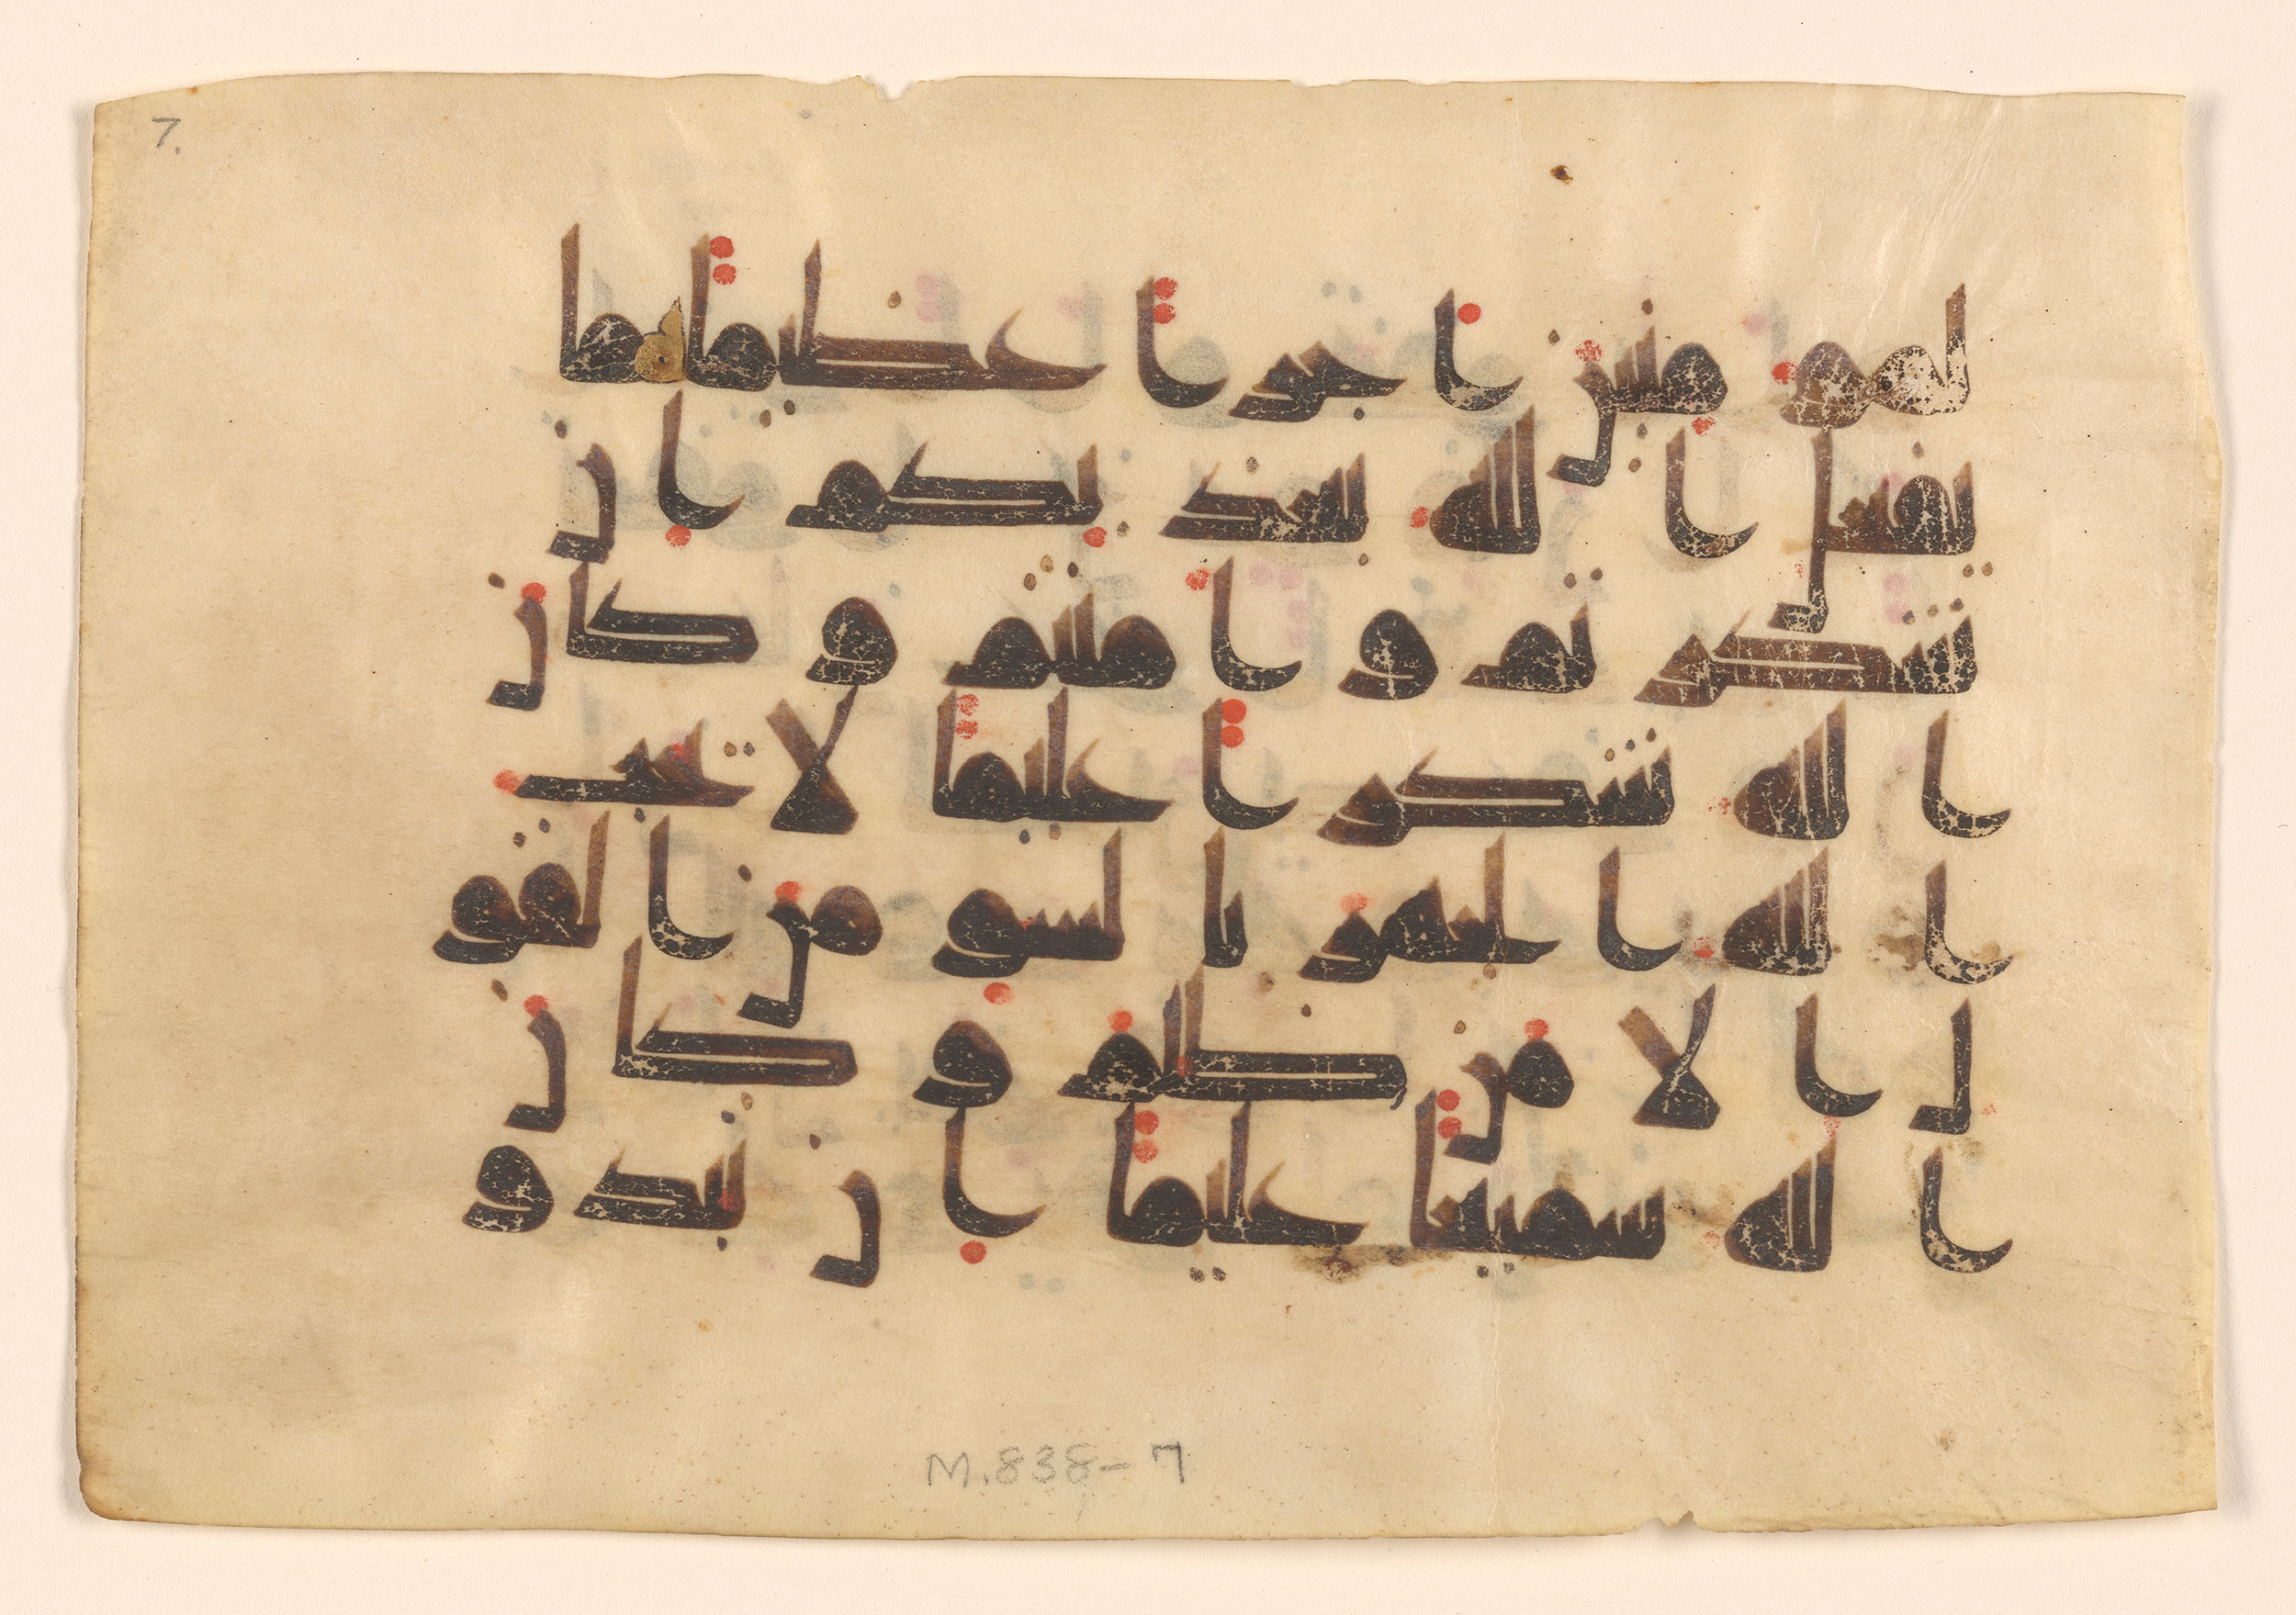 7.
لمومنين اجرا عظيما ما
يفعل الله بعذابكم ان
شكرتم وامنتم وكان
الله شكرا عليما لا يحب
الله الجهر بالسو من القو
ل الا من ظلم وكان
الله سميعا عليما ان تبدو
M.838-7